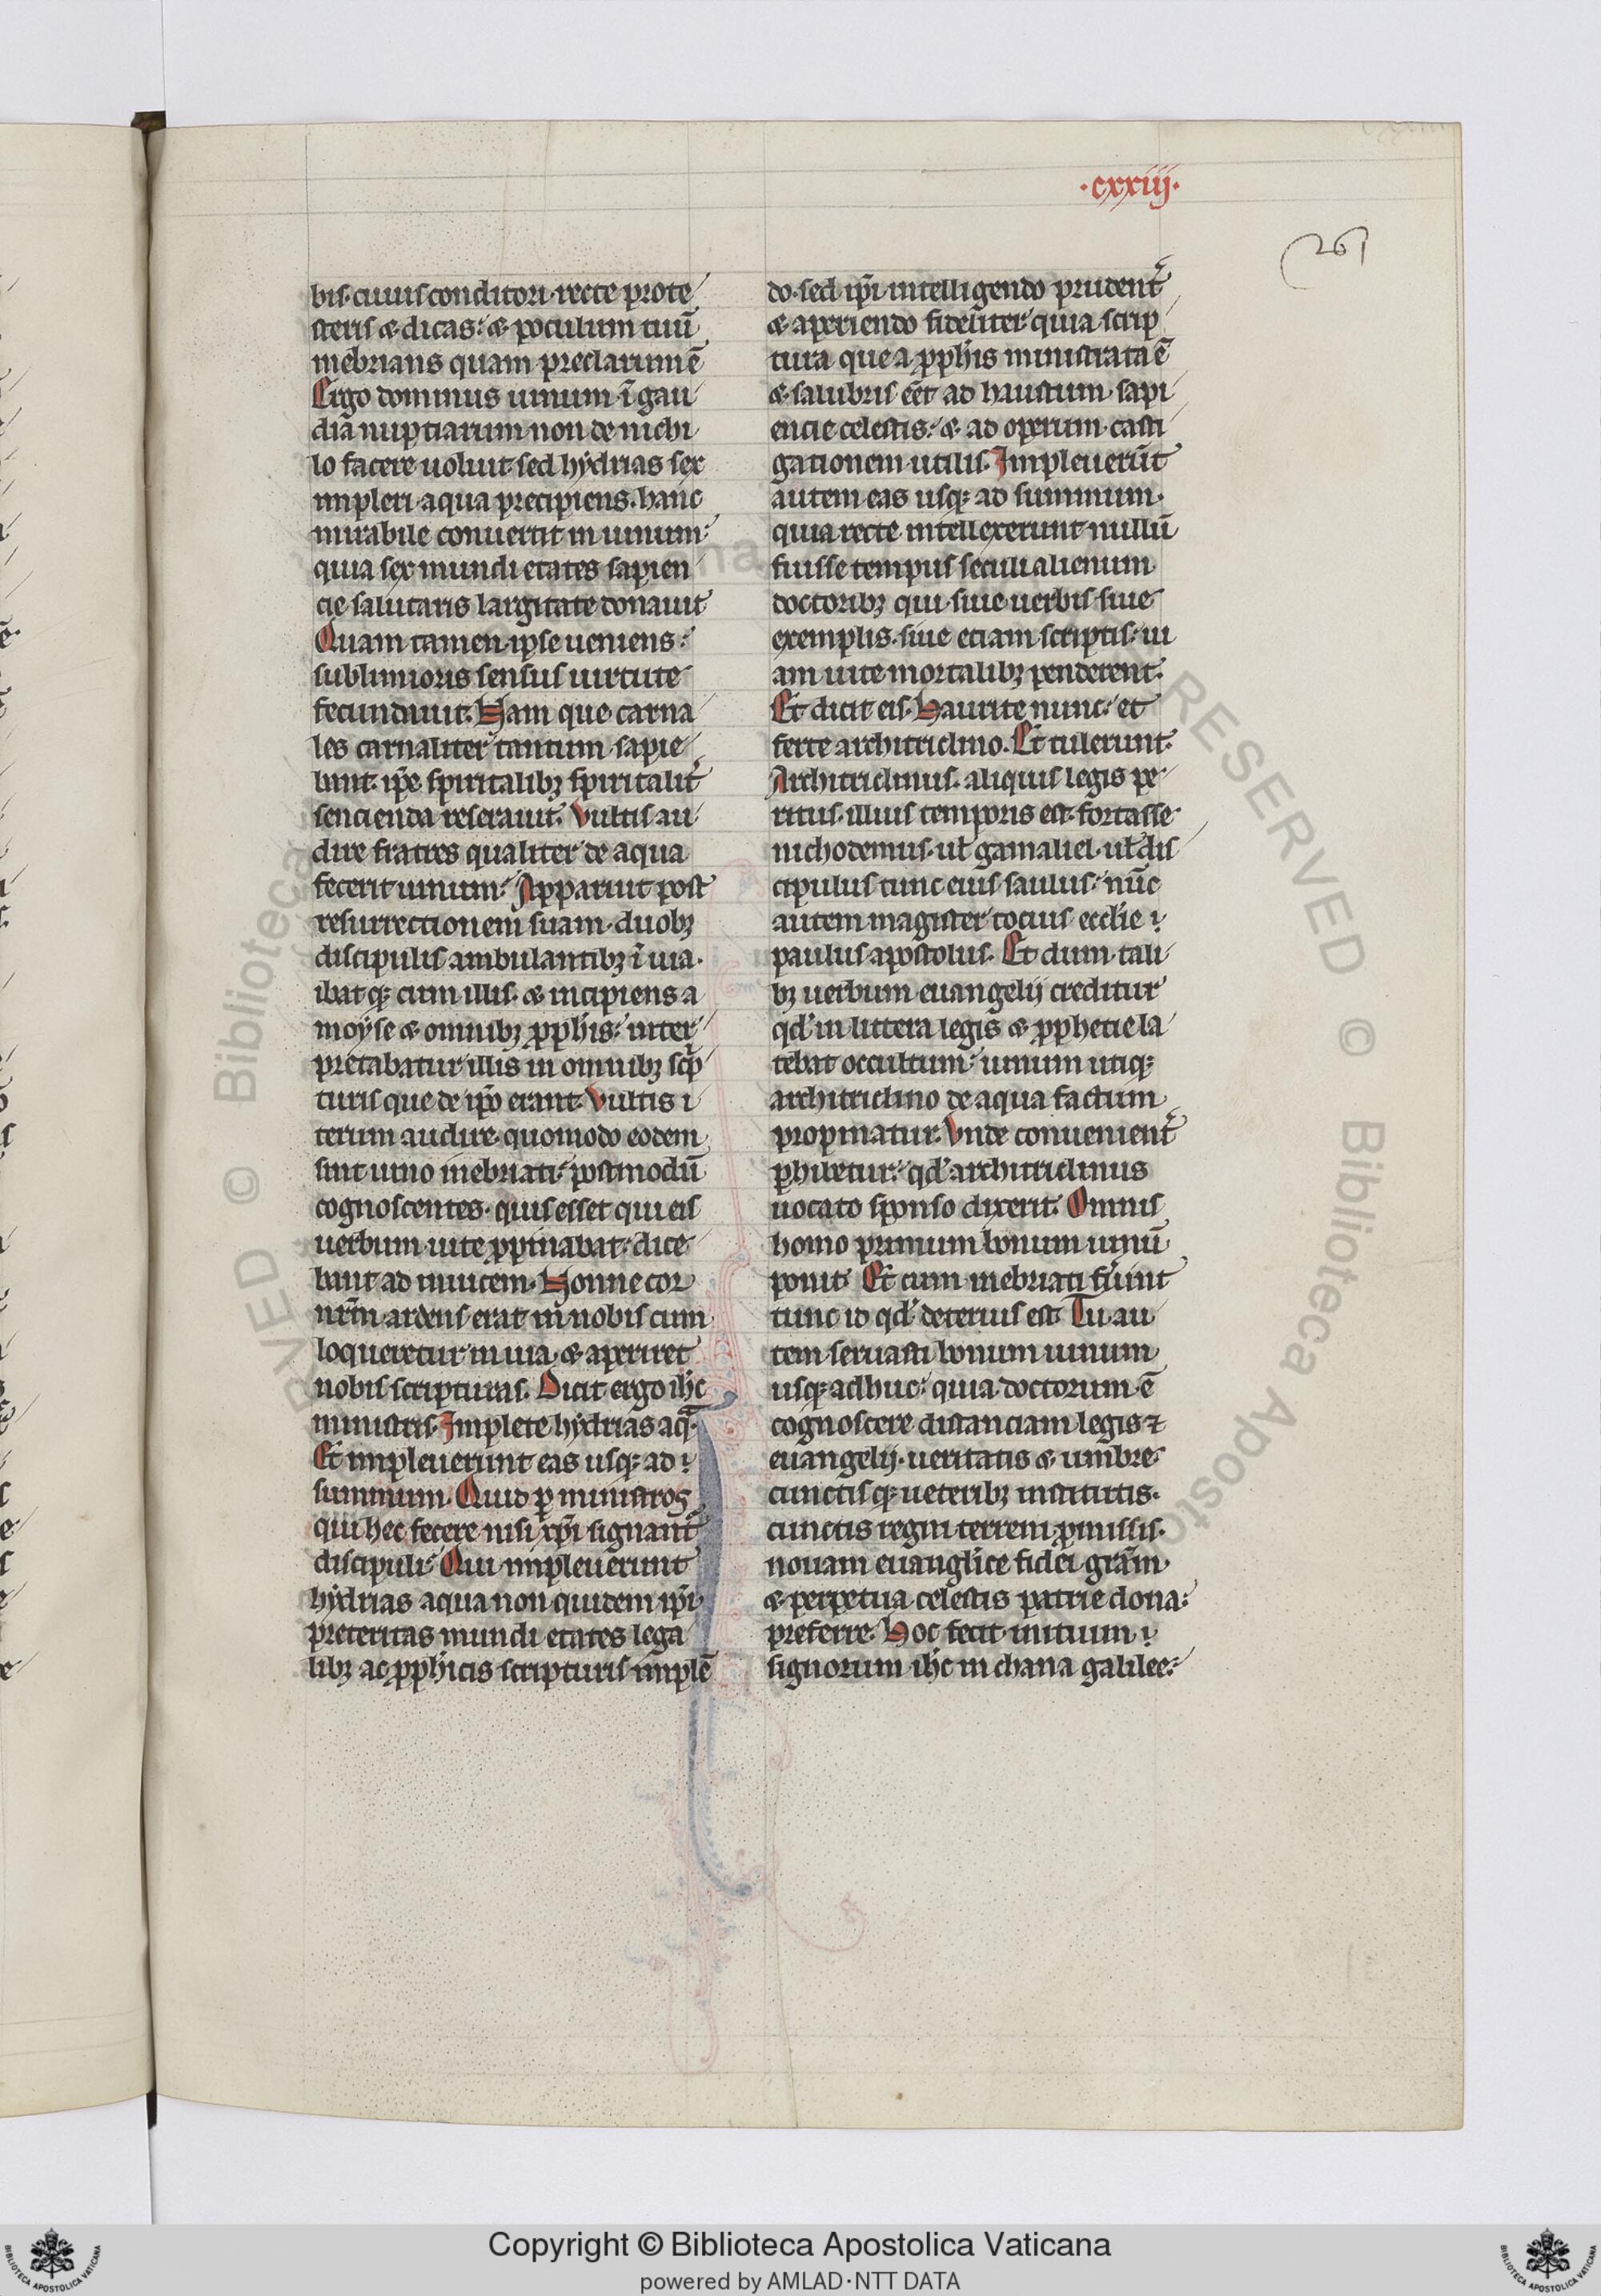 ·cxxiij·
261
bis·cuius conditori·recte prote
steris & dicas: & poculum tuū
inebrians quam preclarum ē
Ergo dominus uinum·ī gau
dia nuptiarum·non de nichi
lo facere uoluit·sed hydrias sex
impleri·aqua precipiens·hanc
mirabile conuertit in uinum:
quia sex mundi etates sapien
cie salutaris largitate donauit
Quam tamen·ipse ueniens:
sublimioris sensus uirtute
fecundiuit. Nam que carna
les carnaliter tantum·sapie
bant·ip̄e spiritalibꝫ spiritalit᷑
sencienda reserauit. Vultis au
dire fratres qualiter de aqua
fecerit uinum: Apparuit post
resurrectionem suam·duobꝫ
discipulis ambulantibꝫ ī uia·
ibat qꝫ cum illis·& incipiens a
moyse & omnibꝫ ꝓph̄is: inter
pretabatur illis in omnibꝫ sc̄p
turis que de ip̄o erant. Vultis i
terum audire·quomodo eodem
sint uino inebriati: postmodū
cognoscentes·quis esset qui eis
uerbum uite ꝓpinabat: dice
bant ad inuicem·Nonne cor
nr̄m ardens erat in nobis cum
loqueretur in uia·& aperiret
nobis scripturas. Dicit ergo ih̄c
ministris·Implete hydrias aqᵃ·
Et impleuerunt eas usqꝫ ad
summum. Quid ꝑ ministros
qui hec fecere nisi xp̄i signant᷑
discipuli: Qui impleuerunt
hydrias aqua non quidem ip̄i
preteritas mundi etates lega
libꝫ ac ꝓph̄icis scripturis implē
do·sed ip̄i intelligendo prudent᷑
& aperiendo fidelīter quia scrip
tura que a ꝓph̄is ministrata ē
& salubris eēt ad haustum·sapi
encie celestis: & ad operum·casti
gationem utilis. Impleuerūt
autem eas usqꝫ ad summum·
quia recte intellexerunt nullū
fuisse tempus seculi alienum
doctoribꝫ qui·siue uerbis·siue
exemplis·siue etiam scriptis: ui
am uite mortalibꝫ penderent.
Et dicit eis·Haurite nunc: et
ferte architriclino. Et tulerunt.
Architriclinus·aliquis legis pe
ritus·illius temporis est·fortasse
nichodemus·ul̄ gamaliel·ul̄ dis
cipulus tunc eius saulus: nūc
autem magister tocius eccl̄ie
paulus apostolus. Et dum·tali
bꝫ uerbum euangelij creditur
qd̄ in littera legis & ꝓphetie la
tebat occultum: uinum utiqꝫ
architriclino de aqua factum
propinatur. Vnde conuenient᷑
ꝑhibetur: qd̄ architriclinus
uocato sponso dixerit. Omnis
homo primum bonum uinū
ponit Et cum inebriati fu᷑int
tunc id qd̄ deterius est Tu au
tem seruasti bonum uinum
usqꝫ adhuc: quia·doctorum ē
cognoscere distanciam legis ⁊
euangelij·ueritatis & umbre
cunctis qꝫ ueteribꝫ institutis·
cunctis regni terreni ꝓmissis·
nouam euangl̄ice fidei gr̄am
& perpetua celestis patrie dona:
preferre. Hoc fecit initium
signorum ih̄c in chana galilee:
Copyright © Biblioteca Apostolica Vaticana
powered by AMLAD·NTT DATA